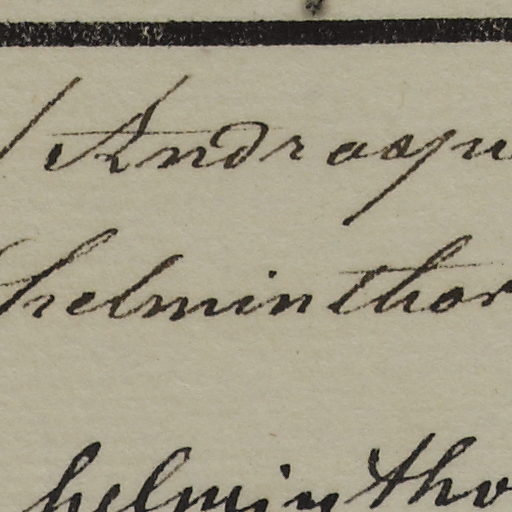 Andraapu
helminthor
helmintho